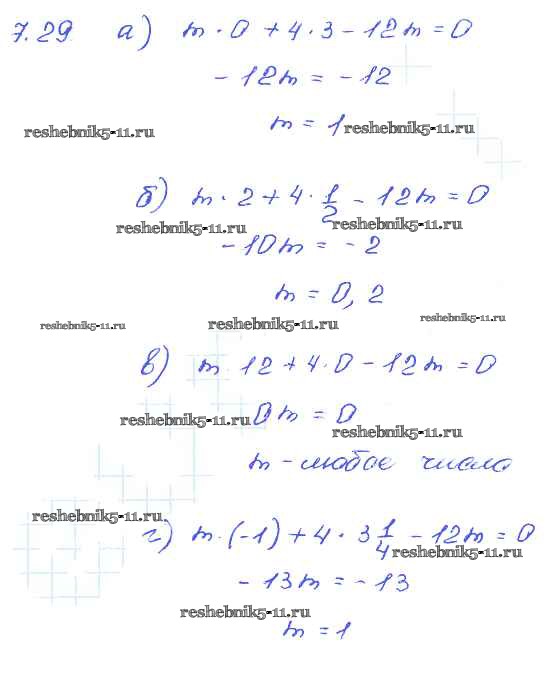 7.29 а) m · 0 + 4 · 3 - 12m = 0
- 12m = - 12
reshebnik5-11.ru m = 1 reshebnik5-11.ru
б) m · 2 + 4 · 1/2 - 12m = 0
reshebnik5-11.ru reshebnik5-11.ru
- 10m = - 2
m = 0,2
reshebnik5-11.ru reshebnik5-11.ru reshebnik5-11.ru
в) m 12 + 4 · 0 - 12m = 0
reshebnik5-11.ru 0m = 0
reshebnik5-11.ru
m - любое число
reshebnik5-11.ru
г) m · (-1) + 4 · 3 1/4 - 12m = 0
reshebnik5-11.ru
- 13m = - 13
reshebnik5-11.ru
m = 1